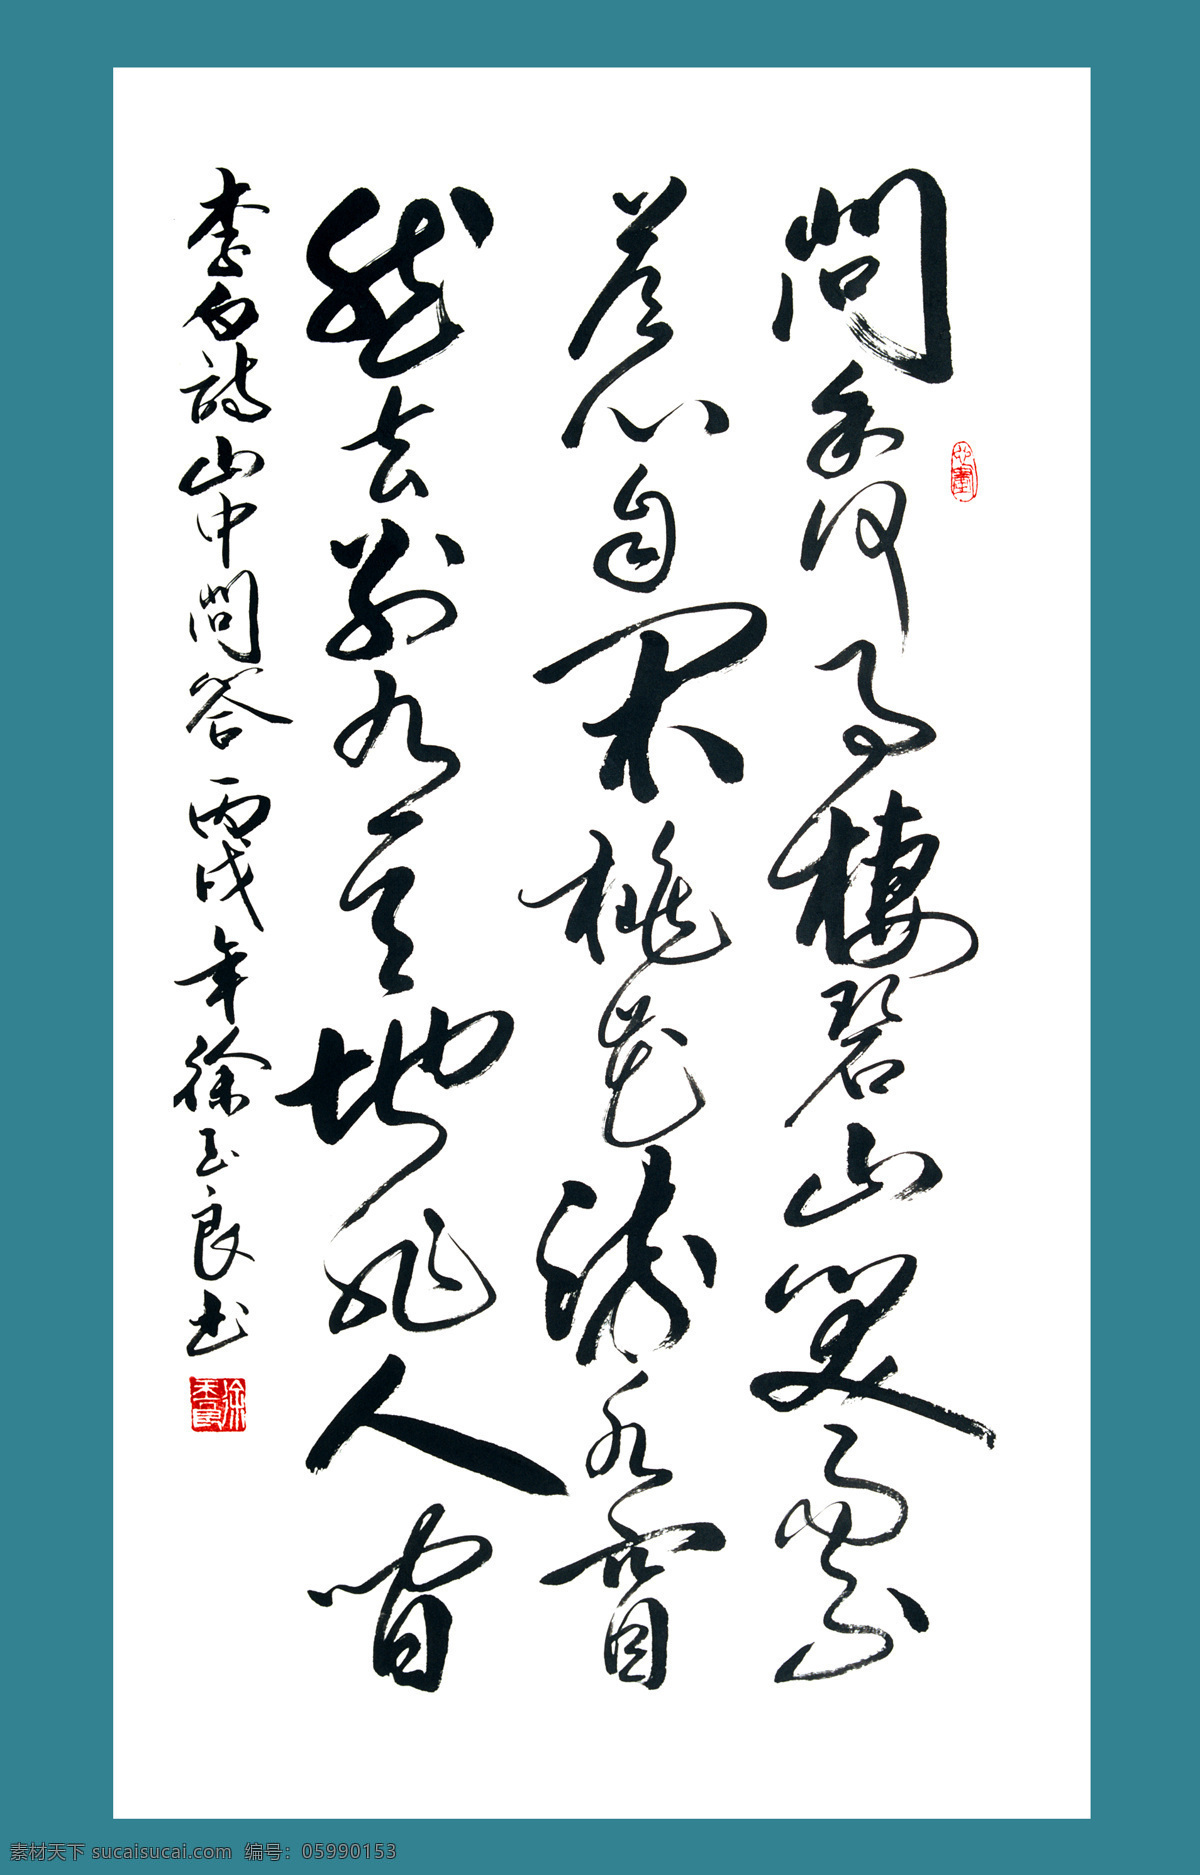 問余何事棲碧山笑而不
答心自閑桃花流水窅
然去別有天地非人間
李白詩山中問答丙戌年徐玉良书
徐玉良
素材天下 sucaisucai.com 编号:05990153